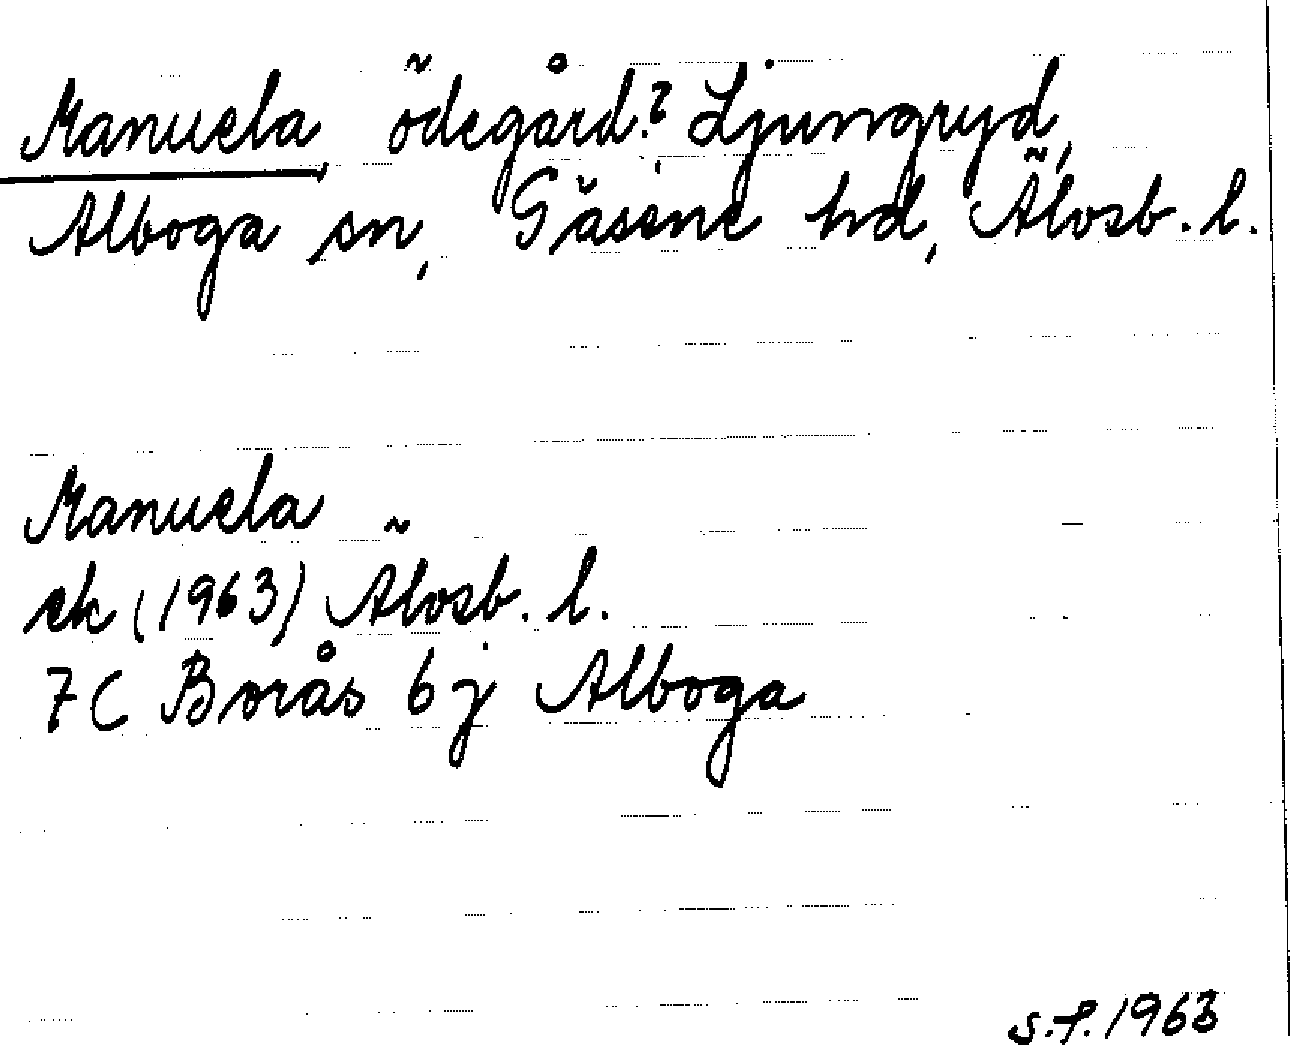 Manuela, ödegård? Ljungryd,
Alboga sn, Gäsene hd, Älvsb. l.
Manuela
ek (1963) Älvsb. l.
7C Borås 6j Alboga
S.F. 1963